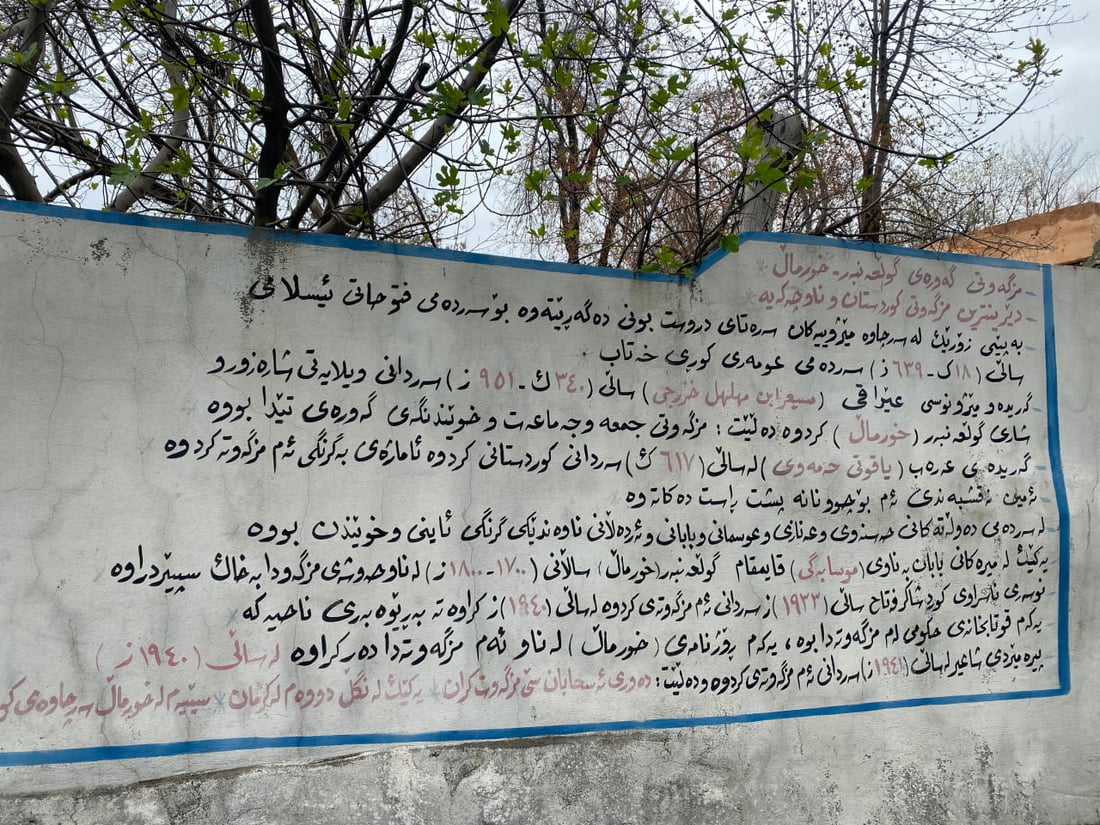 - مزگەوتی گەورەی گوڵعەنبەر - خورماڵ
- دێرینترین مزگەوتی کوردستان و ناوچەکەیە
- بەپێی زۆرێك لە سەرچاوە مێژوییەکان سەرەتای دروست بونی دەگەڕێتەوە بۆ سەردەمی فتوحاتی ئیسلامی
ساڵی (١٨ك - ٦٣٩ز) سەردەمی عومەری کوڕی خەتاب
- گەریدە و مێژونوسی عێراقی (مسیعر ابن مهلهل خزرجی) ساڵی (٣٤٠ك - ٩٥١ ز) سەردانی ویلایەتی شارەزور و
شاری گوڵعەنبەر (خورماڵ) کردوە دەڵێت : مزگەوتی جمعە وجەماعەت و خوێندنگەی گەورەی تێدا بووە
- گەریدەی عەرەب (یاقوتی حەمەوی) لەساڵی (٦١٧ك) سەردانی کوردستانی کردوە ئاماژەی بەگرنگی ئەم مزگەوتە کردوە
- ئەمین نەقشبەندی ئەم بۆچوونانە پشت ڕاست دەکاتەوە
- لە سەردەمی دەوڵەتەکانی حەسنوی وعەنازی وعوسمانی وبابانی وئەردەڵانی ناوەندێکی گرنگی ئاینی وخوێندن بووە
- یەکێك لە میرەکانی بابان بەناوی (موسابەگی) قایمقام گوڵعەنبەر (خورماڵ) ساڵانی (١٧٠٠ - ١٨٠٠ز) لەناوحەوشەی مزگەودا بەخاك سپێردراوە
- نوسەری ناسراوی کورد شاکر فتاح ساڵی (١٩٢٣)ز سەردانی ئەم مزگەوتەی کردوە لەساڵی (١٩٤٠)ز کراوە تە بەڕێوەبەری ناحیەکە
- یەکەم قوتابخانەی حکومی لەم مزگەوتەدا بوە ، یەکەم ڕۆژنامەی (خورماڵ) لەناو ئەم مزگەوتەدا دەرکراوە لەساڵی (١٩٤٠ ز)
- پیرەمێردی شاعیر لەساڵی (١٩٤١ ز) سەردانی ئەم مزگەوتەی کردوە ودەڵێت : دەوری ئەسحابان سێ مزگەوت کران * یەکێك لە نگل دووەم لە کرمان * سێیەم لە خورماڵ سەرچاوەی